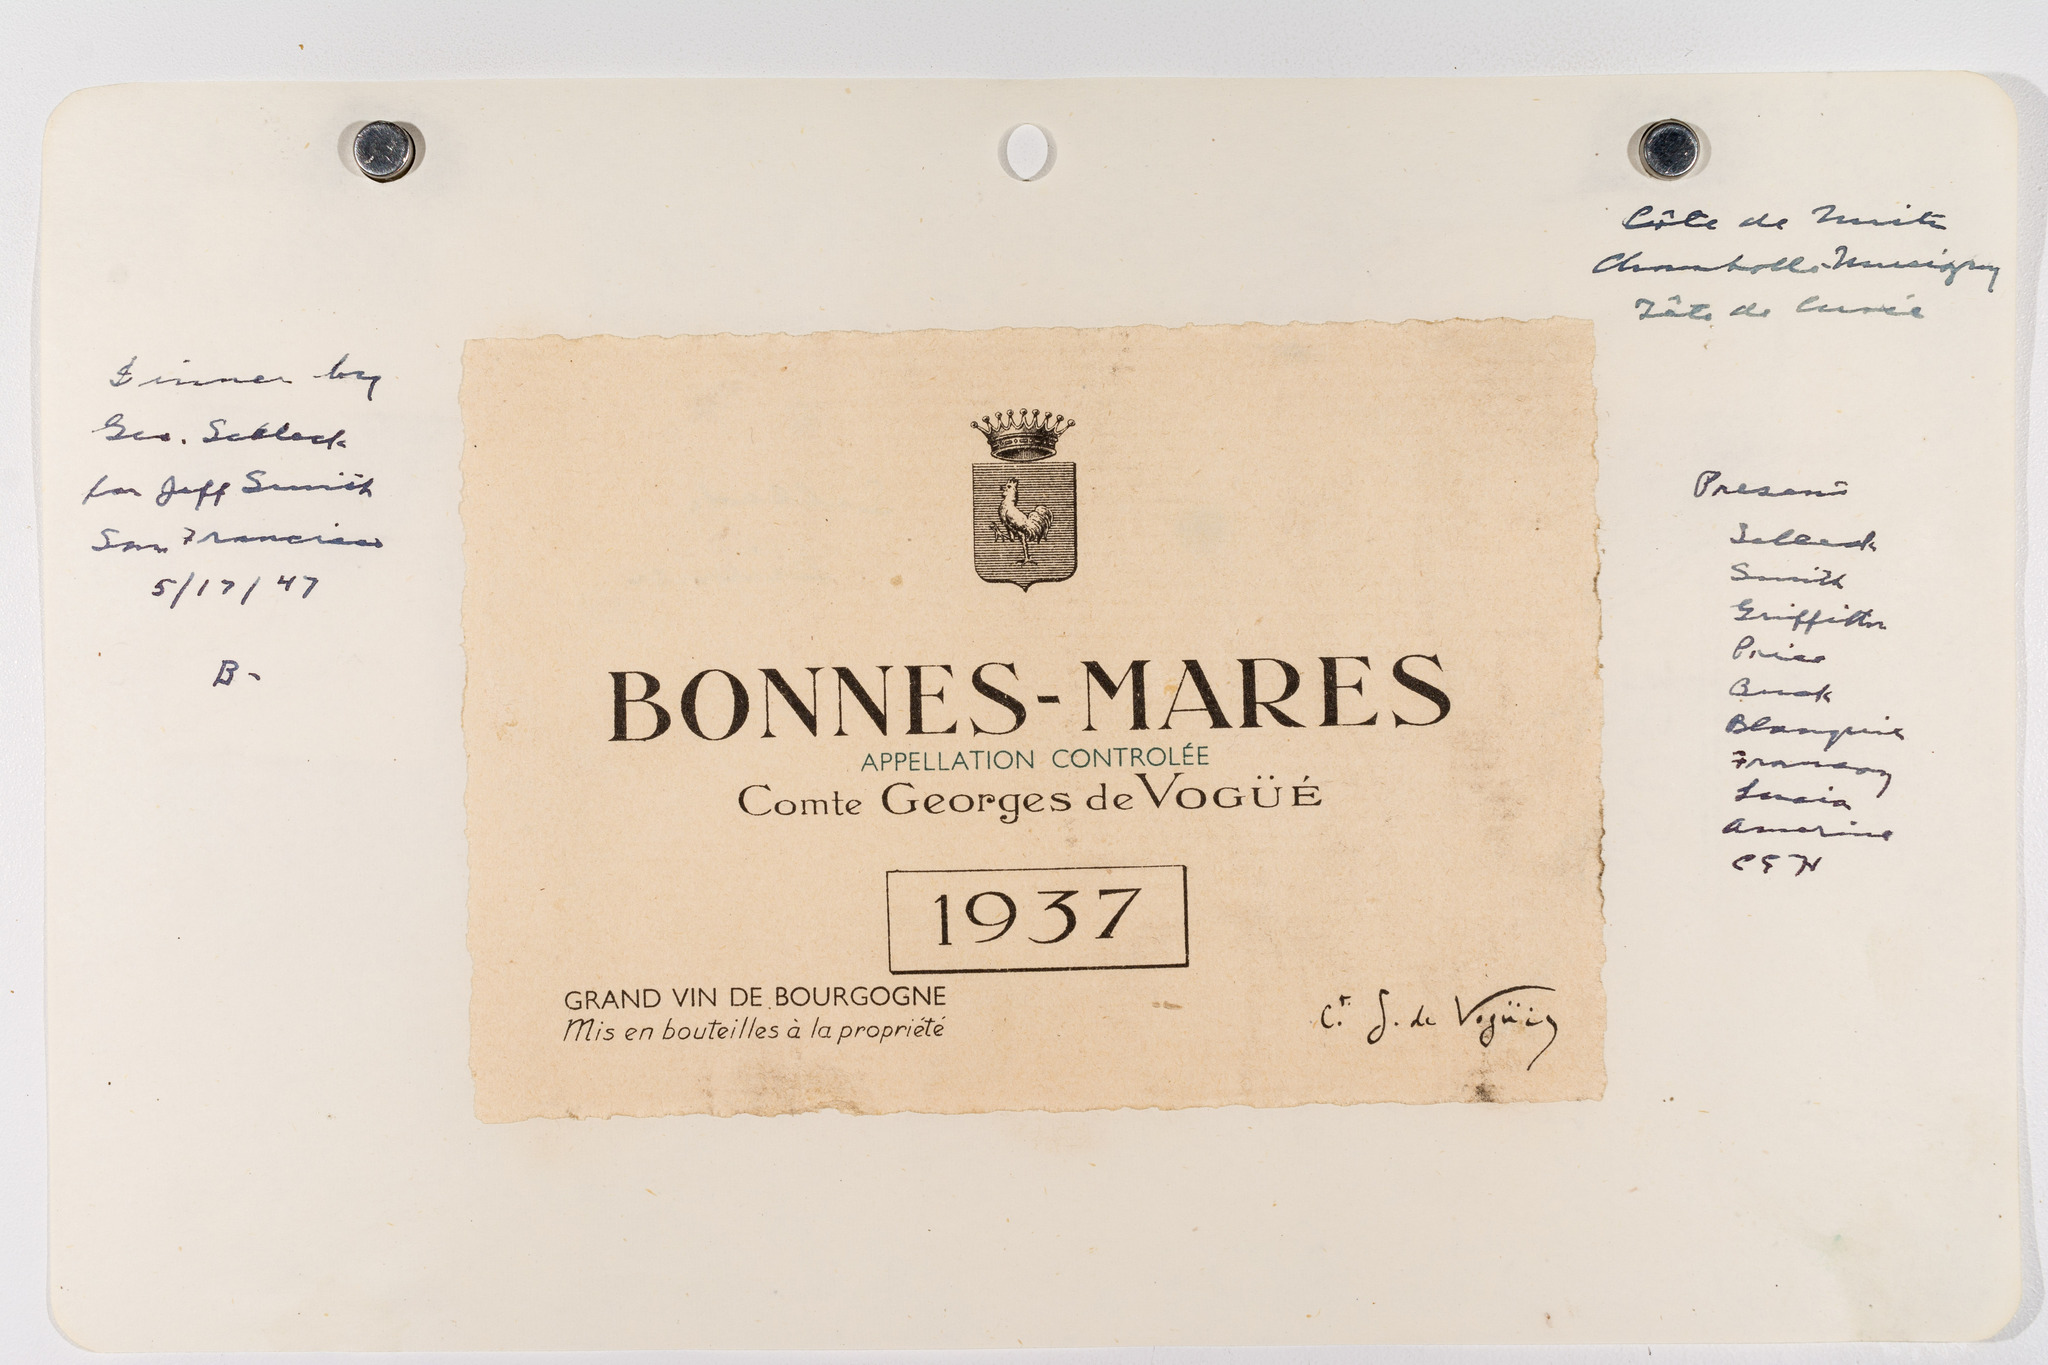 Côte de Nuits
Chambolle-Musigny
Tête de Cuvée
Dinner by
Geo. Selleck
for Jeff Smith
San Francisco
5/17/47
B-
BONNES-MARES
APPELLATION CONTROLÉE
Comte Georges de VOGÜÉ
1937
GRAND VIN DE BOURGOGNE
Mis en bouteilles à la propriété
Ct. G. de Vogüé
Present
Selleck
Smith
Griffiths
Price
Buck
Blanquie
Amerine